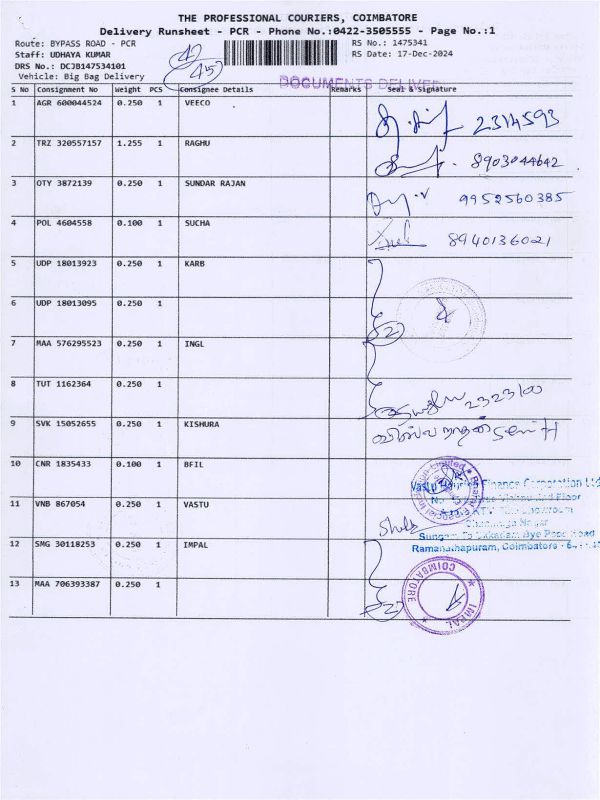 THE PROFESSIONAL COURIERS, COIMBATORE
Delivery Runsheet - PCR - Phone No.:0422-3505555 - Page No.:1
Route: BYPASS ROAD - PCR RS No.: 1475341
Staff: UDHAYA KUMAR RS Date: 17-Dec-2024
DRS No.: DCJB147534101
Vehicle: Big Bag Delivery
42
45
DOCUMENTS DELIVER
S No Consignment No Weight PCS Consignee Details Remarks Seal & Signature
1 AGR 600044524 0.250 1 VEECO 2314593
2 TRZ 320557157 1.255 1 RAGHU 8903044642
3 OTY 3872139 0.250 1 SUNDAR RAJAN 9952560385
4 POL 4604558 0.100 1 SUCHA 8940136021
5 UDP 18013923 0.250 1 KARB
6 UDP 18013095 0.250 1
2
7 MAA 576295523 0.250 1 INGL
8 TUT 1162364 0.250 1 2323100
9 SVK 15052655 0.250 1 KISHURA
10 CNR 1835433 0.100 1 BFIL
Vastu Housing Finance Corporation Ltd
11 VNB 867054 0.250 1 VASTU
Ramanathapuram, Coimbatore
12 SMG 30118253 0.250 1 IMPAL
13 MAA 706393387 0.250 1
2
COIMBATORE
IMPAL